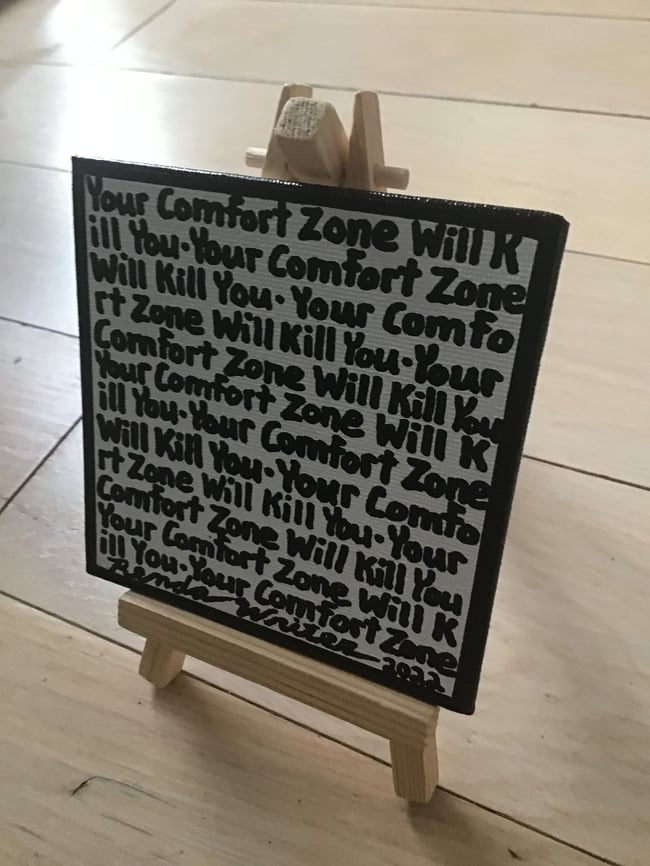 Your Comfort Zone Will K
ill You·Your Comfort Zone
Will Kill You·Your Comfo
rt Zone Will Kill You·Your
Comfort Zone Will Kill You
Your Comfort Zone Will K
ill You·Your Comfort Zone
Will Kill You·Your Comfo
rt Zone Will Kill You·Your
Comfort Zone Will Kill You
Your Comfort Zone Will K
ill You·Your Comfort Zone
Writer 2022